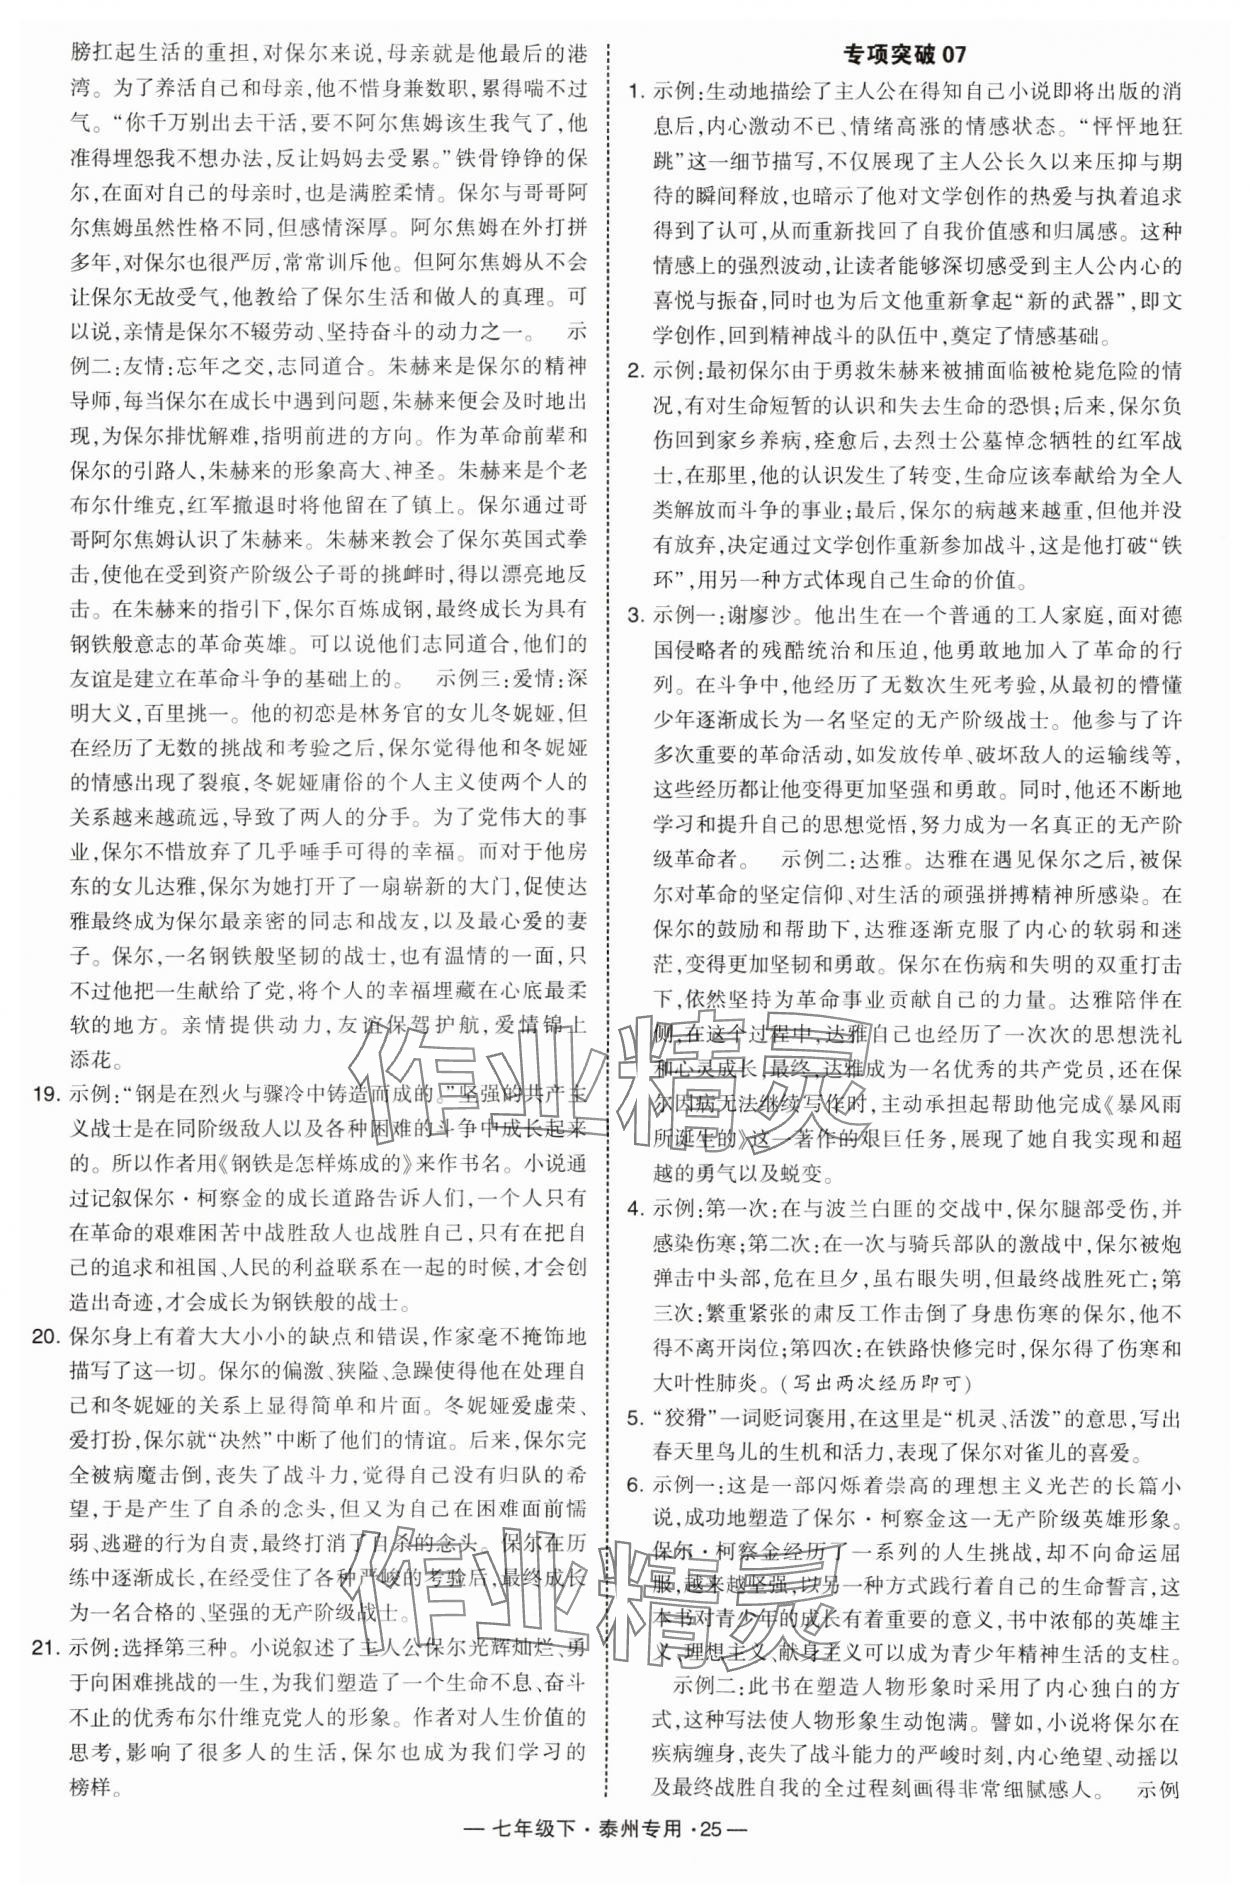 膀扛起生活的重担，对保尔来说，母亲就是他最后的港
湾。为了养活自己和母亲，他不惜身兼数职，累得喘不过
气。“你千万别出去干活，要不阿尔焦姆该生我气了，他
准得埋怨我不想办法，反让妈妈去受累。”铁骨铮铮的保
尔，在面对自己的母亲时，也是满腔柔情。保尔与哥哥阿
尔焦姆虽然性格不同，但感情深厚。阿尔焦姆在外打拼
多年，对保尔也很严厉，常常训斥他。但阿尔焦姆从不会
让保尔无故受气，他教给了保尔生活和做人的真理。可
以说，亲情是保尔不辍劳动、坚持奋斗的动力之一。　示
例二：友情：忘年之交，志同道合。朱赫来是保尔的精神
导师，每当保尔在成长中遇到问题，朱赫来便会及时地出
现，为保尔排忧解难，指明前进的方向。作为革命前辈和
保尔的引路人，朱赫来的形象高大、神圣。朱赫来是个老
布尔什维克，红军撤退时将他留在了镇上。保尔通过哥
哥阿尔焦姆认识了朱赫来。朱赫来教会了保尔英国式拳
击，使他在受到资产阶级公子哥的挑衅时，得以漂亮地反
击。在朱赫来的指引下，保尔百炼成钢，最终成长为具有
钢铁般意志的革命英雄。可以说他们志同道合，他们的
友谊是建立在革命斗争的基础上的。　示例三：爱情：深
明大义，百里挑一。他的初恋是林务官的女儿冬妮娅，但
在经历了无数的挑战和考验之后，保尔觉得他和冬妮娅
的情感出现了裂痕，冬妮娅庸俗的个人主义使两个人的
关系越来越疏远，导致了两人的分手。为了党伟大的事
业，保尔不惜放弃了几乎唾手可得的幸福。而对于他房
东的女儿达雅，保尔为她打开了一扇崭新的大门，促使达
雅最终成为保尔最亲密的同志和战友，以及最心爱的妻
子。保尔，一名钢铁般坚韧的战士，也有温情的一面，只
不过他把一生献给了党，将个人的幸福埋藏在心底最柔
软的地方。亲情提供动力，友谊保驾护航，爱情锦上
添花。
19. 示例：“钢是在烈火与骤冷中铸造而成的。”坚强的共产主
义战士是在同阶级敌人以及各种困难的斗争中成长起来
的。所以作者用《钢铁是怎样炼成的》来作书名。小说通
过记叙保尔·柯察金的成长道路告诉人们，一个人只有
在革命的艰难困苦中战胜敌人也战胜自己，只有在把自
己的追求和祖国、人民的利益联系在一起的时候，才会创
造出奇迹，才会成长为钢铁般的战士。
20. 保尔身上有着大大小小的缺点和错误，作家毫不掩饰地
描写了这一切。保尔的偏激、狭隘、急躁使得他在处理自
己和冬妮娅的关系上显得简单和片面。冬妮娅爱虚荣、
爱打扮，保尔就“决然”中断了他们的情谊。后来，保尔完
全被病魔击倒，丧失了战斗力，觉得自己没有归队的希
望，于是产生了自杀的念头，但又为自己在困难面前懦
弱、逃避的行为自责，最终打消了自杀的念头。保尔在历
练中逐渐成长，在经受住了各种严峻的考验后，最终成长
为一名合格的、坚强的无产阶级战士。
21. 示例：选择第三种。小说叙述了主人公保尔光辉灿烂、勇
于向困难挑战的一生，为我们塑造了一个生命不息、奋斗
不止的优秀布尔什维克党人的形象。作者对人生价值的
思考，影响了很多人的生活，保尔也成为我们学习的
榜样。
专项突破 07
1. 示例：生动地描绘了主人公在得知自己小说即将出版的消
息后，内心激动不已、情绪高涨的情感状态。“怦怦地狂
跳”这一细节描写，不仅展现了主人公长久以来压抑与期
待的瞬间释放，也暗示了他对文学创作的热爱与执着追求
得到了认可，从而重新找回了自我价值感和归属感。这种
情感上的强烈波动，让读者能够深切感受到主人公内心的
喜悦与振奋，同时也为后文他重新拿起“新的武器”，即文
学创作，回到精神战斗的队伍中，奠定了情感基础。
2. 示例：最初保尔由于勇救朱赫来被捕面临被枪毙危险的情
况，有对生命短暂的认识和失去生命的恐惧；后来，保尔负
伤回到家乡养病，痊愈后，去烈士公墓悼念牺牲的红军战
士，在那里，他的认识发生了转变，生命应该奉献给为全人
类解放而斗争的事业；最后，保尔的病越来越重，但他并没
有放弃，决定通过文学创作重新参加战斗，这是他打破“铁
环”，用另一种方式体现自己生命的价值。
3. 示例一：谢廖沙。他出生在一个普通的工人家庭，面对德
国侵略者的残酷统治和压迫，他勇敢地加入了革命的行
列。在斗争中，他经历了无数次生死考验，从最初的懵懂
少年逐渐成长为一名坚定的无产阶级战士。他参与了许
多次重要的革命活动，如发放传单、破坏敌人的运输线等，
这些经历都让他变得更加坚强和勇敢。同时，他还不断地
学习和提升自己的思想觉悟，努力成为一名真正的无产阶
级革命者。　示例二：达雅。达雅在遇见保尔之后，被保
尔对革命的坚定信仰、对生活的顽强拼搏精神所感染。在
保尔的鼓励和帮助下，达雅逐渐克服了内心的软弱和迷
茫，变得更加坚韧和勇敢。保尔在伤病和失明的双重打击
下，依然坚持为革命事业贡献自己的力量。达雅陪伴在
侧，在这个过程中，达雅自己也经历了一次次的思想洗礼
和心灵成长，最终，达雅成为一名优秀的共产党员，还在保
尔因病无法继续写作时，主动承担起帮助他完成《暴风雨
所诞生的》这一著作的艰巨任务，展现了她自我实现和超
越的勇气以及蜕变。
4. 示例：第一次：在与波兰白匪的交战中，保尔腿部受伤，并
感染伤寒；第二次：在一次与骑兵部队的激战中，保尔被炮
弹击中头部，危在旦夕，虽右眼失明，但最终战胜死亡；第
三次：繁重紧张的肃反工作击倒了身患伤寒的保尔，他不
得不离开岗位；第四次：在铁路快修完时，保尔得了伤寒和
大叶性肺炎。（写出两次经历即可）
5. “狡猾”一词贬词褒用，在这里是“机灵、活泼”的意思，写出
春天里鸟儿的生机和活力，表现了保尔对雀儿的喜爱。
6. 示例一：这是一部闪烁着崇高的理想主义光芒的长篇小
说，成功地塑造了保尔·柯察金这一无产阶级英雄形象。
保尔·柯察金经历了一系列的人生挑战，却不向命运屈
服，越来越坚强，以另一种方式践行着自己的生命誓言，这
本书对青少年的成长有着重要的意义，书中浓郁的英雄主
义、理想主义、献身精神可以成为青少年精神生活的支柱。
示例二：此书在塑造人物形象时采用了内心独白的方
式，这种写法使人物形象生动饱满。譬如，小说将保尔在
疾病缠身，丧失了战斗能力的严峻时刻，内心绝望、动摇以
及最终战胜自我的全过程刻画得非常细腻感人。　示例
作业精灵
作业精灵
— 七年级下·泰州专用·25 —